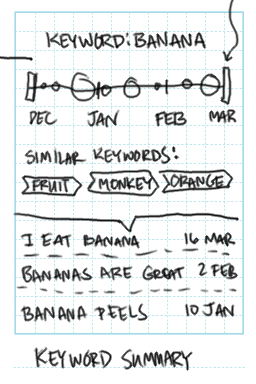 KEYWORD: BANANA
DEC JAN FEB MAR
SIMILAR KEYWORDS:
FRUIT MONKEY ORANGE
I EAT BANANA 16 MAR
BANANAS ARE GREAT 2 FEB
BANANA PEELS 10 JAN
KEYWORD SUMMARY